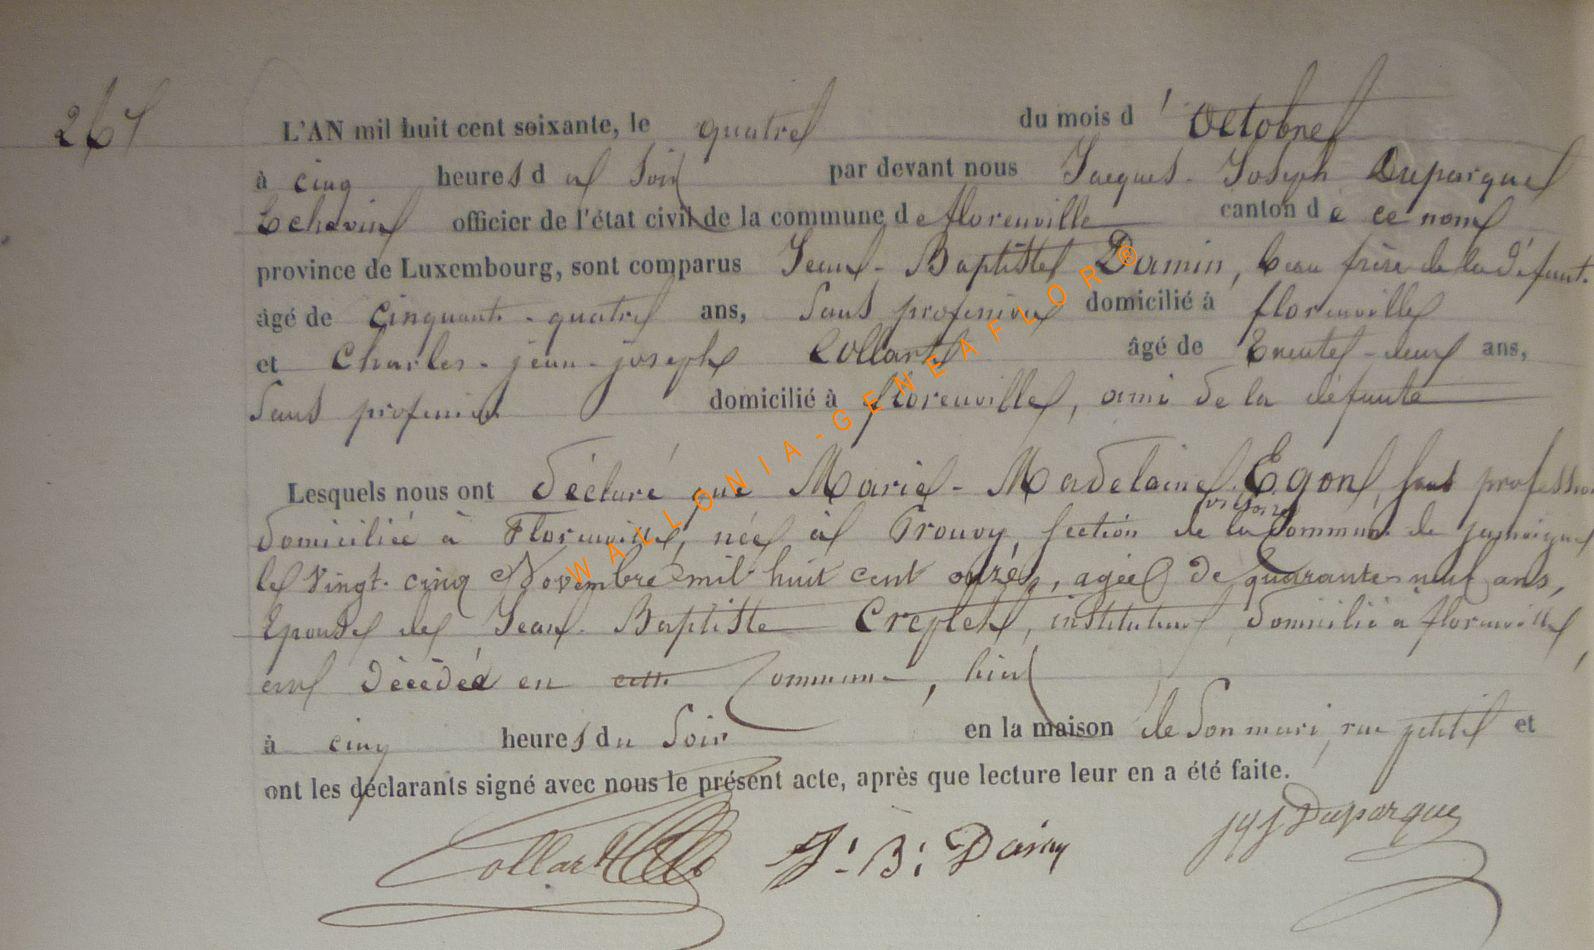 267
L'AN mil huit cent soixante, le quatre du mois d'Octobre
à cinq heures du Soir par devant nous Jacques-Joseph Duparque
Echevin officier de l'état civil de la commune de florenville canton de ce nom
province de Luxembourg, sont comparus Jean-Baptiste Damin, beau frère de la défunt.
âgé de cinquante-quatre ans, Sans profession domicilié à florenville
et Charles-jean-joseph Collart âgé de trente-deux ans,
Sans profession domicilié à florenville, ami de la défunte
Lesquels nous ont déclaré que Marie-Madelaine Egon, sans profession
domiciliée à Florenville, née à Prouvy, section de la Commune de jamoigne
le Vingt-cinq Novembre mil huit cent onze, agée de quarante neuf ans,
Epouse de Jean-Baptiste Creplet, instituteur, domicilié à florenville,
est décédée en cette Commune, hier
à cinq heures du Soir en la maison de Son mari, rue petite et
ont les déclarants signé avec nous le présent acte, après que lecture leur en a été faite.
Collart J. B. Damin J J Duparque
WALLONIA-GENEAFLOR®